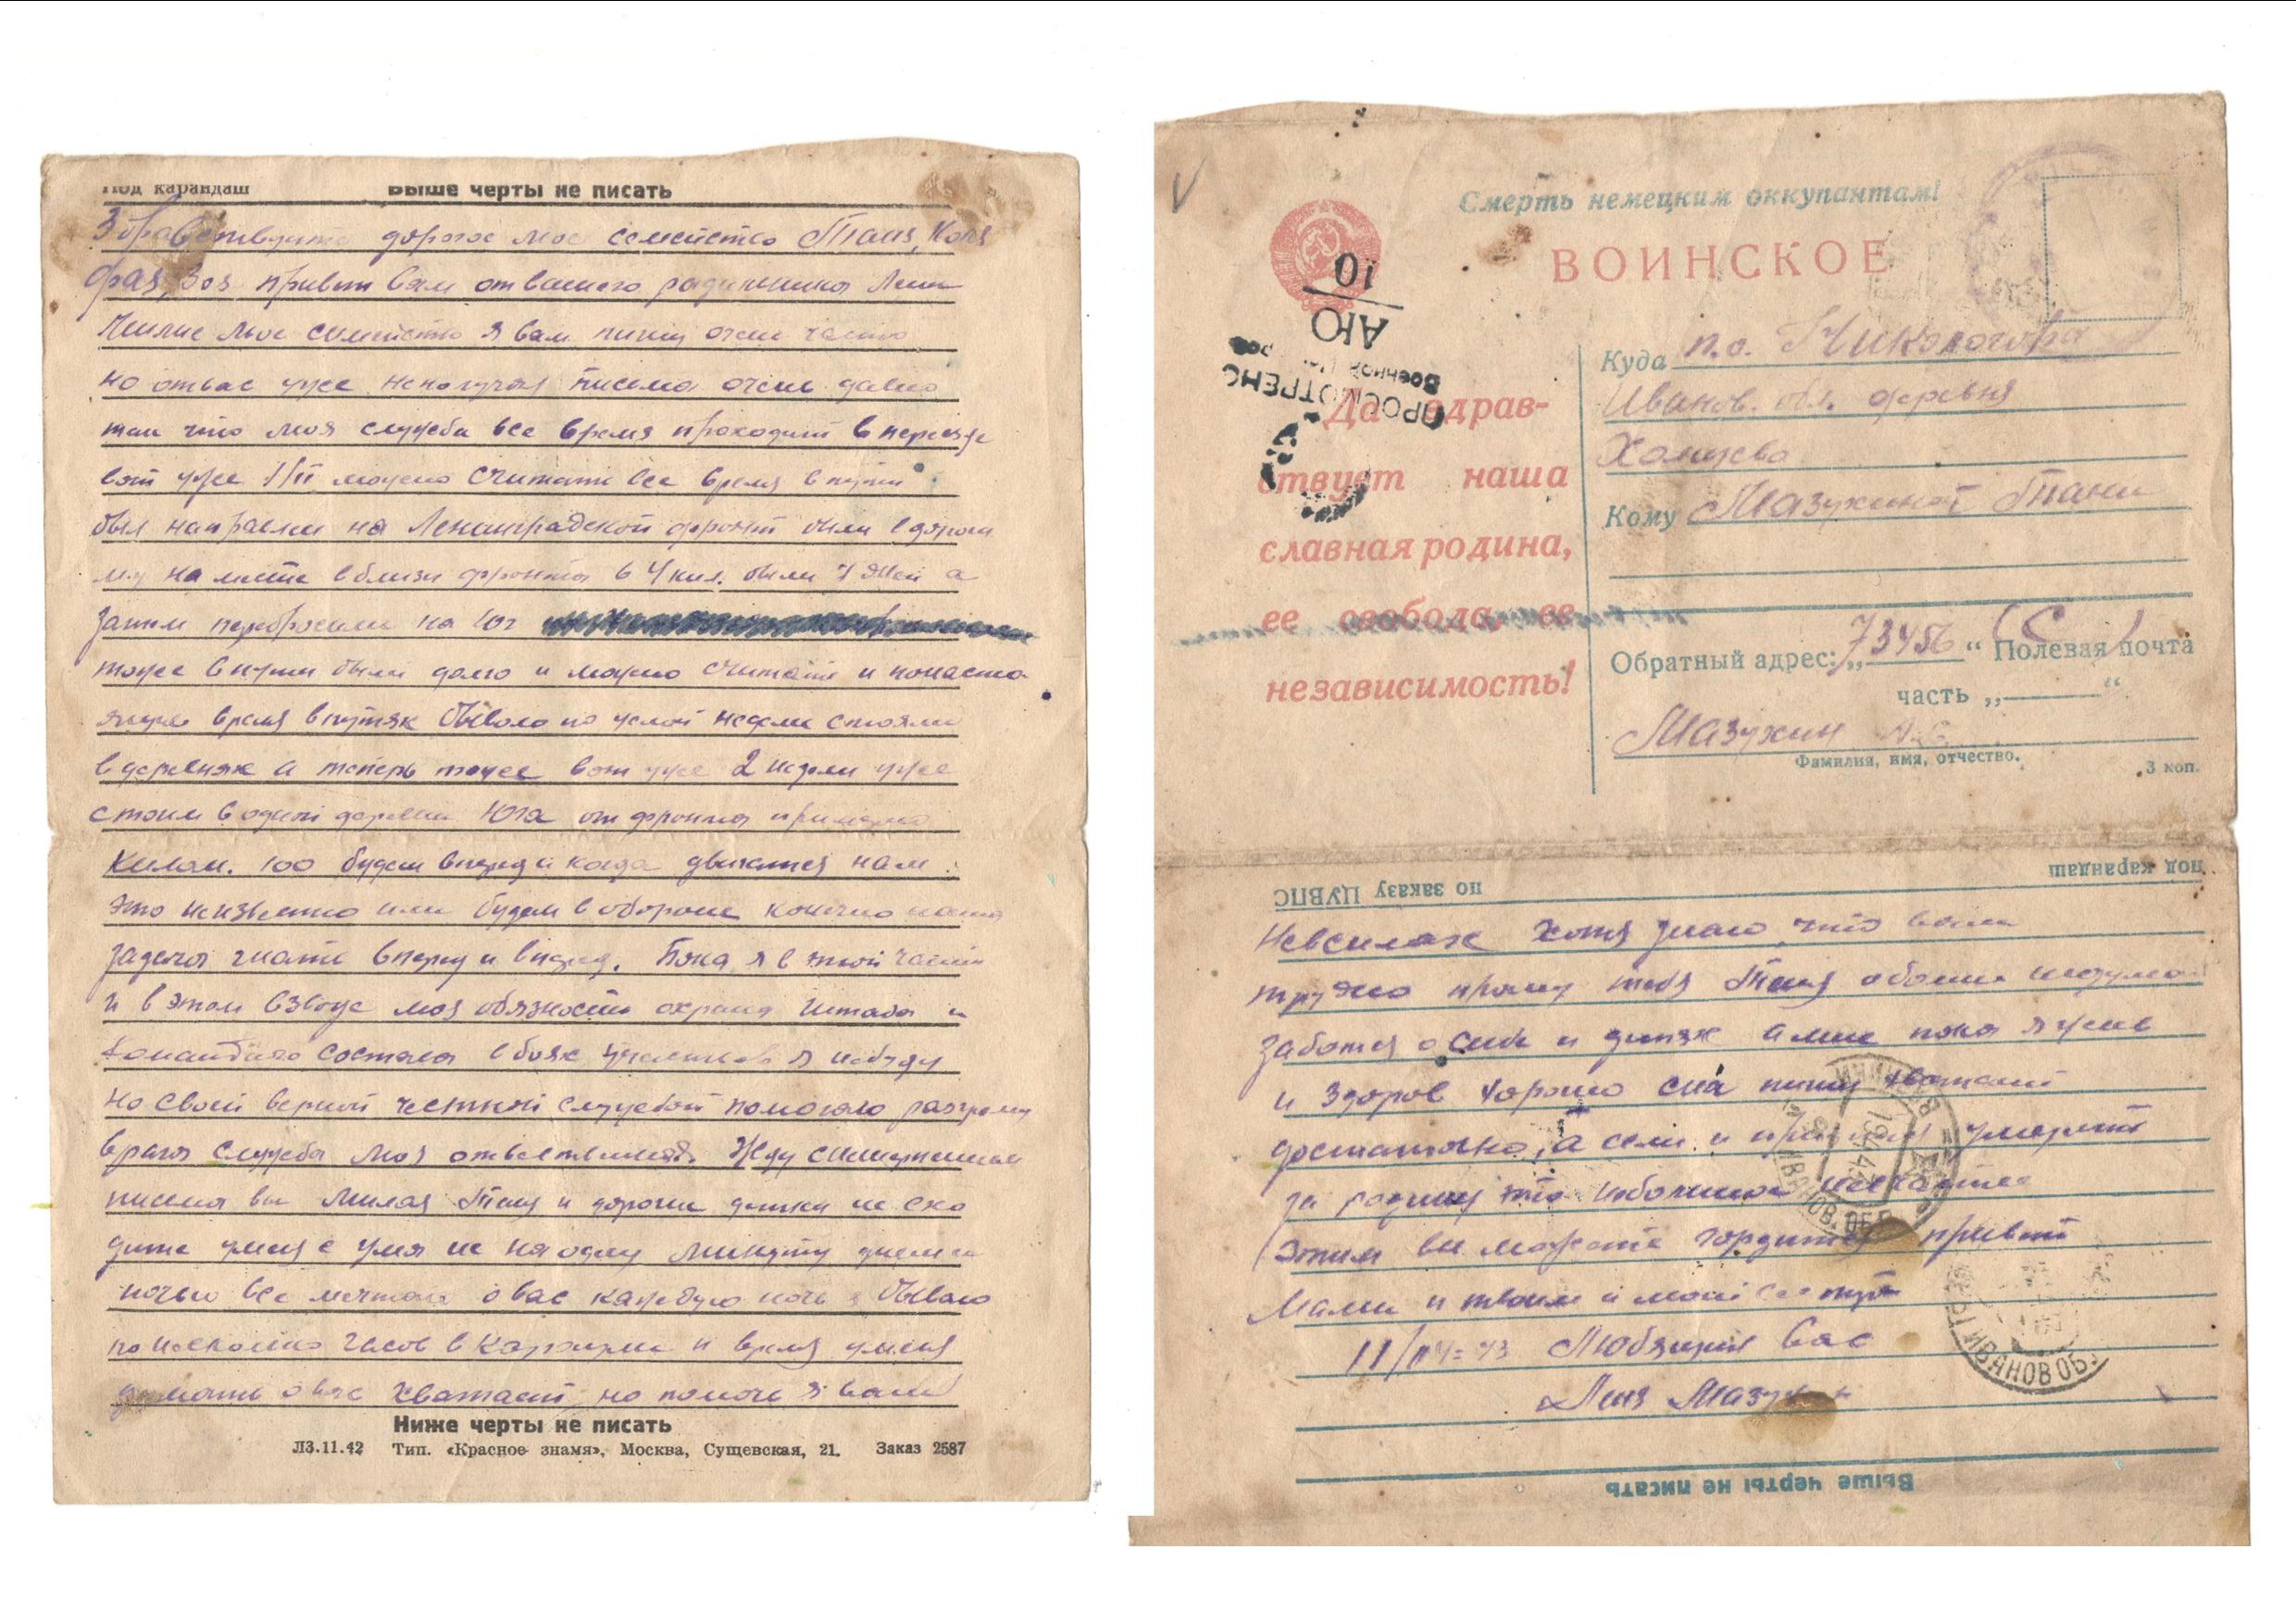 Под карандаш Выше черты не писать
Здравствуите дорогое мое семейство Таня, Коля
Фая, Зоя привет вам от вашего радителника Лени
Милые мое семейство я вам пишу очен часто
но отвас уже неполучал писема очень давно
так что моя служба все время проходит в переезде
вот уже 1/II можно считать все время в пути
был направлен на Ленинградской фронт были в дороги
м-ц на месте вблизи фронта в 4 кил. были 7 дней а
затем перебросили на юг
тоже в пути были долго и можно считать и понасто
ящие время в путях бывало по целой недели стояли
в деревнях а теперь тоже вот уже 2 недели уже
стоим в одной деревни Юга от фронта примерно
килом. 100 будем вперед и когда двигатся нам
это неизвестно или будем в обороне конечно наша
задача гнать вперед и вперед. Пока я в этой части
и в этом взводе моя обязность охрана штаба и
командного состава в боях участвовать я небуду
но своей верной честной службой помогаю разгрому
врага служба моя ответственная. Жду
писма вы милая Таня и дорогие детки не схо
дите уменя с ума не на одну минуту днем и
ночью все мечтаю о вас каждую ночь я бываю
по несколко часов в карауле и время уменя
думать о вас хватает но помочь я вам
Ниже черты не писать
Л3.11.42 Тип. «Красное знамя», Москва, Сущевская, 21. Заказ 2587
Смерть немецким оккупантам!
ВОИНСКОЕ
АЮ
10
ПРОСМОТРЕНО
Военной
Да здрав-
ствует наша
славная родина,
ее свобода, ее
независимость!
Куда п.о. Никологоры
Иванов. обл. деревня
Холуево
Кому Мазухиной Тани
Обратный адрес: „73456“ Полевая почта
часть „ “
Мазухин А.С.
Фамилия, имя, отчество.
3 коп.
по заказу ЦУВПС под карандаш
Невсилах хотя знаю что вам
трудно прошу тебя Таня обомне недумай
заботся о себе и детях а мне пока я жив
и здоров хорошо сна пищи хватает
достаточно, а если и умереть
за родину это неболшое несчастье
этим вы можете гордится привет
Мами и твоим и моей сестре
11/IV-43 Любящий вас
Леня Мазухин
Выше черты не писать
19.4.43
ИВАНОВ. ОБЛ.
ИВАНОВ ОБ.